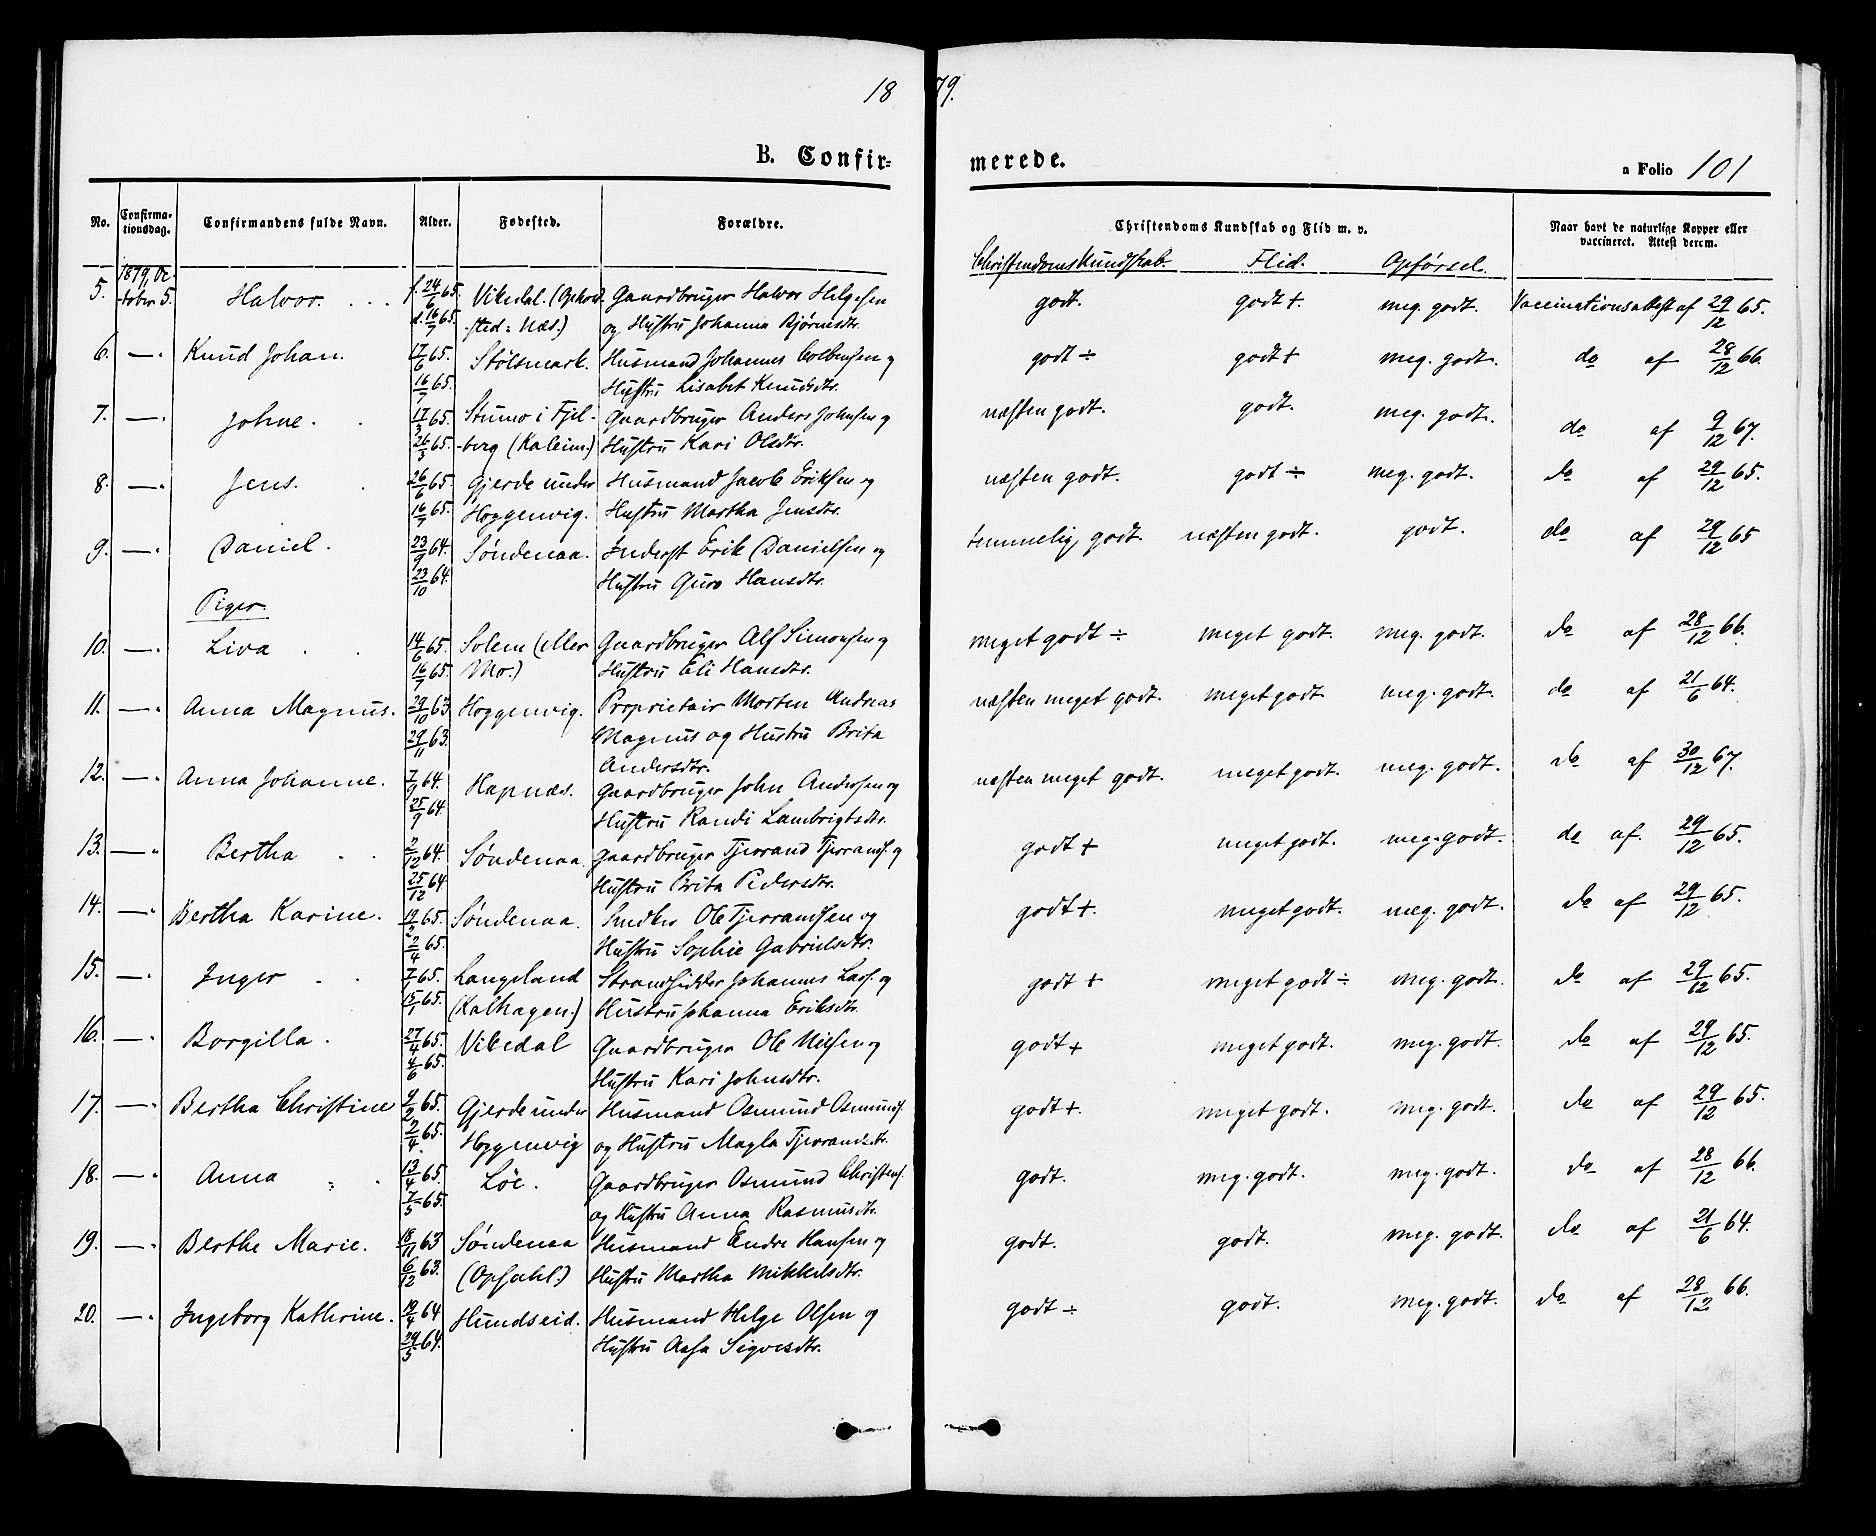 1879.
B. Confirmerede.
a Folio 101
No. Confirmationsdag. Confirmandens fulde Navn. Alder. Fødested. Forældre. Christendoms Kundskab og Flid m. v. Naar havt de naturlige Kopper eller vaccineret. Attest derom.
Christendomskundskab. Flid. Opførsel.
5. 1879, October 5. Halvor. f. 24/6 65. Vikedal. (Opfostr. Gaardbruger Halvor Helgesen godt. godt +. meg. godt. Vaccinationsattest af 29/12 65.
d. 16/7 65. -sted: Næs.) og Hustru Johanna Bjørnsdtr.
6. — Knud Johan. 17/6 65. Stølsmark. Husmand Johannes Colbensen og godt ÷ godt + meg. godt. do af 28/12 66.
16/7 65. Hustru Lisabet Knudsdtr.
7. — Johne. 17/3 65. Stumo i Fjel- Gaardbruger Anders Johnsen og næsten godt. godt. meg. godt. do af 9/12 67.
26/3 65. -berg (Kaleim.) Hustru Kari Olsdtr.
8. — Jens. 26/6 65. Gjerde under Husmand Jacob Eriksen og næsten godt. godt ÷ meg. godt. do af 29/12 65.
16/7 65. Hoggenvig. Hustru Martha Jensdtr.
9. — Daniel. 23/9 64. Søndenaa. Inderst Erik Danielsen og temmelig godt. næsten godt. godt. do af 29/12 65
23/10 64. Hustru Guro Hansdtr.
Piger.
10. — Liva 14/6 65. Solem (eller Gaardbruger Alf Simonsen og meget godt ÷ meget godt. meg. godt. do af 28/12 66.
16/7 65. Mo.) Hustru Eli Hansdtr.
11. — Anna Magnus. 29/10 63 Hoggenvig. Proprietair Morten Andreas næsten meget godt. meget godt meg. godt. do af 21/6 64.
29/11 63. Magnus og Hustru Brita
Andersdtr.
12. — Anna Johanne. 7/9 64. Hapnæs. Gaardbruger John Andersen og næsten meget godt. meget godt. meg. godt. do af 30/12 67.
25/9 64. Hustru Randi Lambrigtsdtr.
13. — Bertha 2/12 64. Søndenaa. Gaardbruger Tjerand Tjerands. og godt + meget godt. meg. godt. do af. 29/12 65.
25/12 64 Hustru Brita Pedersdtr.
14. — Bertha Karine. 19/2 65. Søndenaa. Snedker Ole Tjerandsen og godt +. meget godt. meg. godt. do af 29/12 65.
2/4 65. Hustru Sophie Gabrielsdtr.
15. — Inger 7/1 65. Langeland Strandsidder Johannes Lars. og godt + meget godt ÷ meg. godt. do af 29/12 65.
15/1 65. (Kalhagen.) Hustru Johanna Eriksdtr.
16. — Borgilla. 27/4 65. Vikedal Gaardbruger Ole Nilsen og godt + meget godt. meg. godt. do af 29/12 65.
4/6 65. Hustru Kari Johnsdtr.
17. — Bertha Christine 9/2 65. Gjerde under Husmand Osmund Osmunds. godt +. meget godt. meg. godt. do af 29/12 65.
2/4 65. Hoggenvig og Hustru Magla Tjerandsdtr.
18. — Anna 13/4 65. Løe. Gaardbruger Osmund Christens. godt. meg. godt. meg. godt. do af 28/12 66.
7/5 65. og Hustru Anna Rasmusdtr.
19. — Berthe Marie. 18/11 63 Søndenaa Husmand Endre Hansen og godt. godt. meg. godt. do af 21/6 64.
6/12 63. (Opsahl.) Hustru Martha Mikkelsdtr.
20. — Ingeborg Kathrine. 19/4 64 Hundseid. Husmand Helge Olsen og godt ÷ godt. meg. godt. do af 28/12 66.
29/5 64. Hustru Aasa Sigvesdtr.